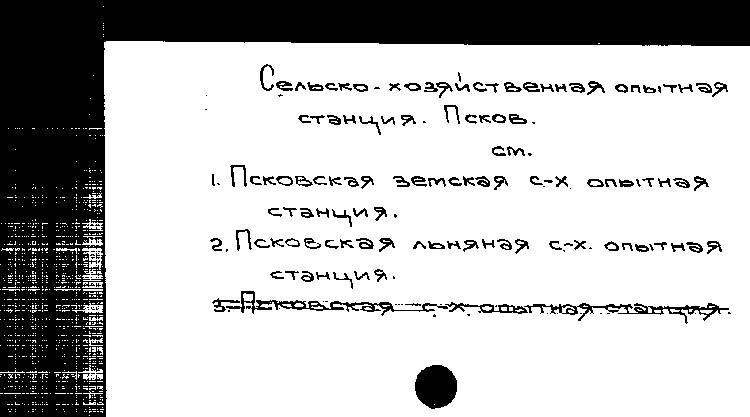 Сельско-хозяйственная опытная
станция. Псков.
см.
1. Псковская земская с-х опытная
станция.
2. Псковская льняная с-х. опытная
станция.
3. Псковская с-х. опытная станция.